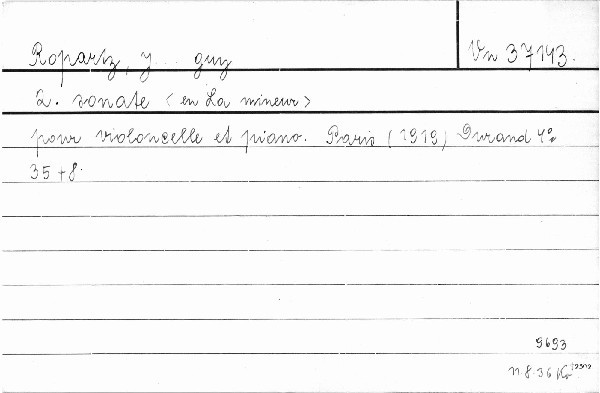 Ropartz, J... guy
Vn 37143.
2. sonate <en La mineur>
pour violoncelle et piano. Paris (1919) Durand 4°.
35 + 8.
9693